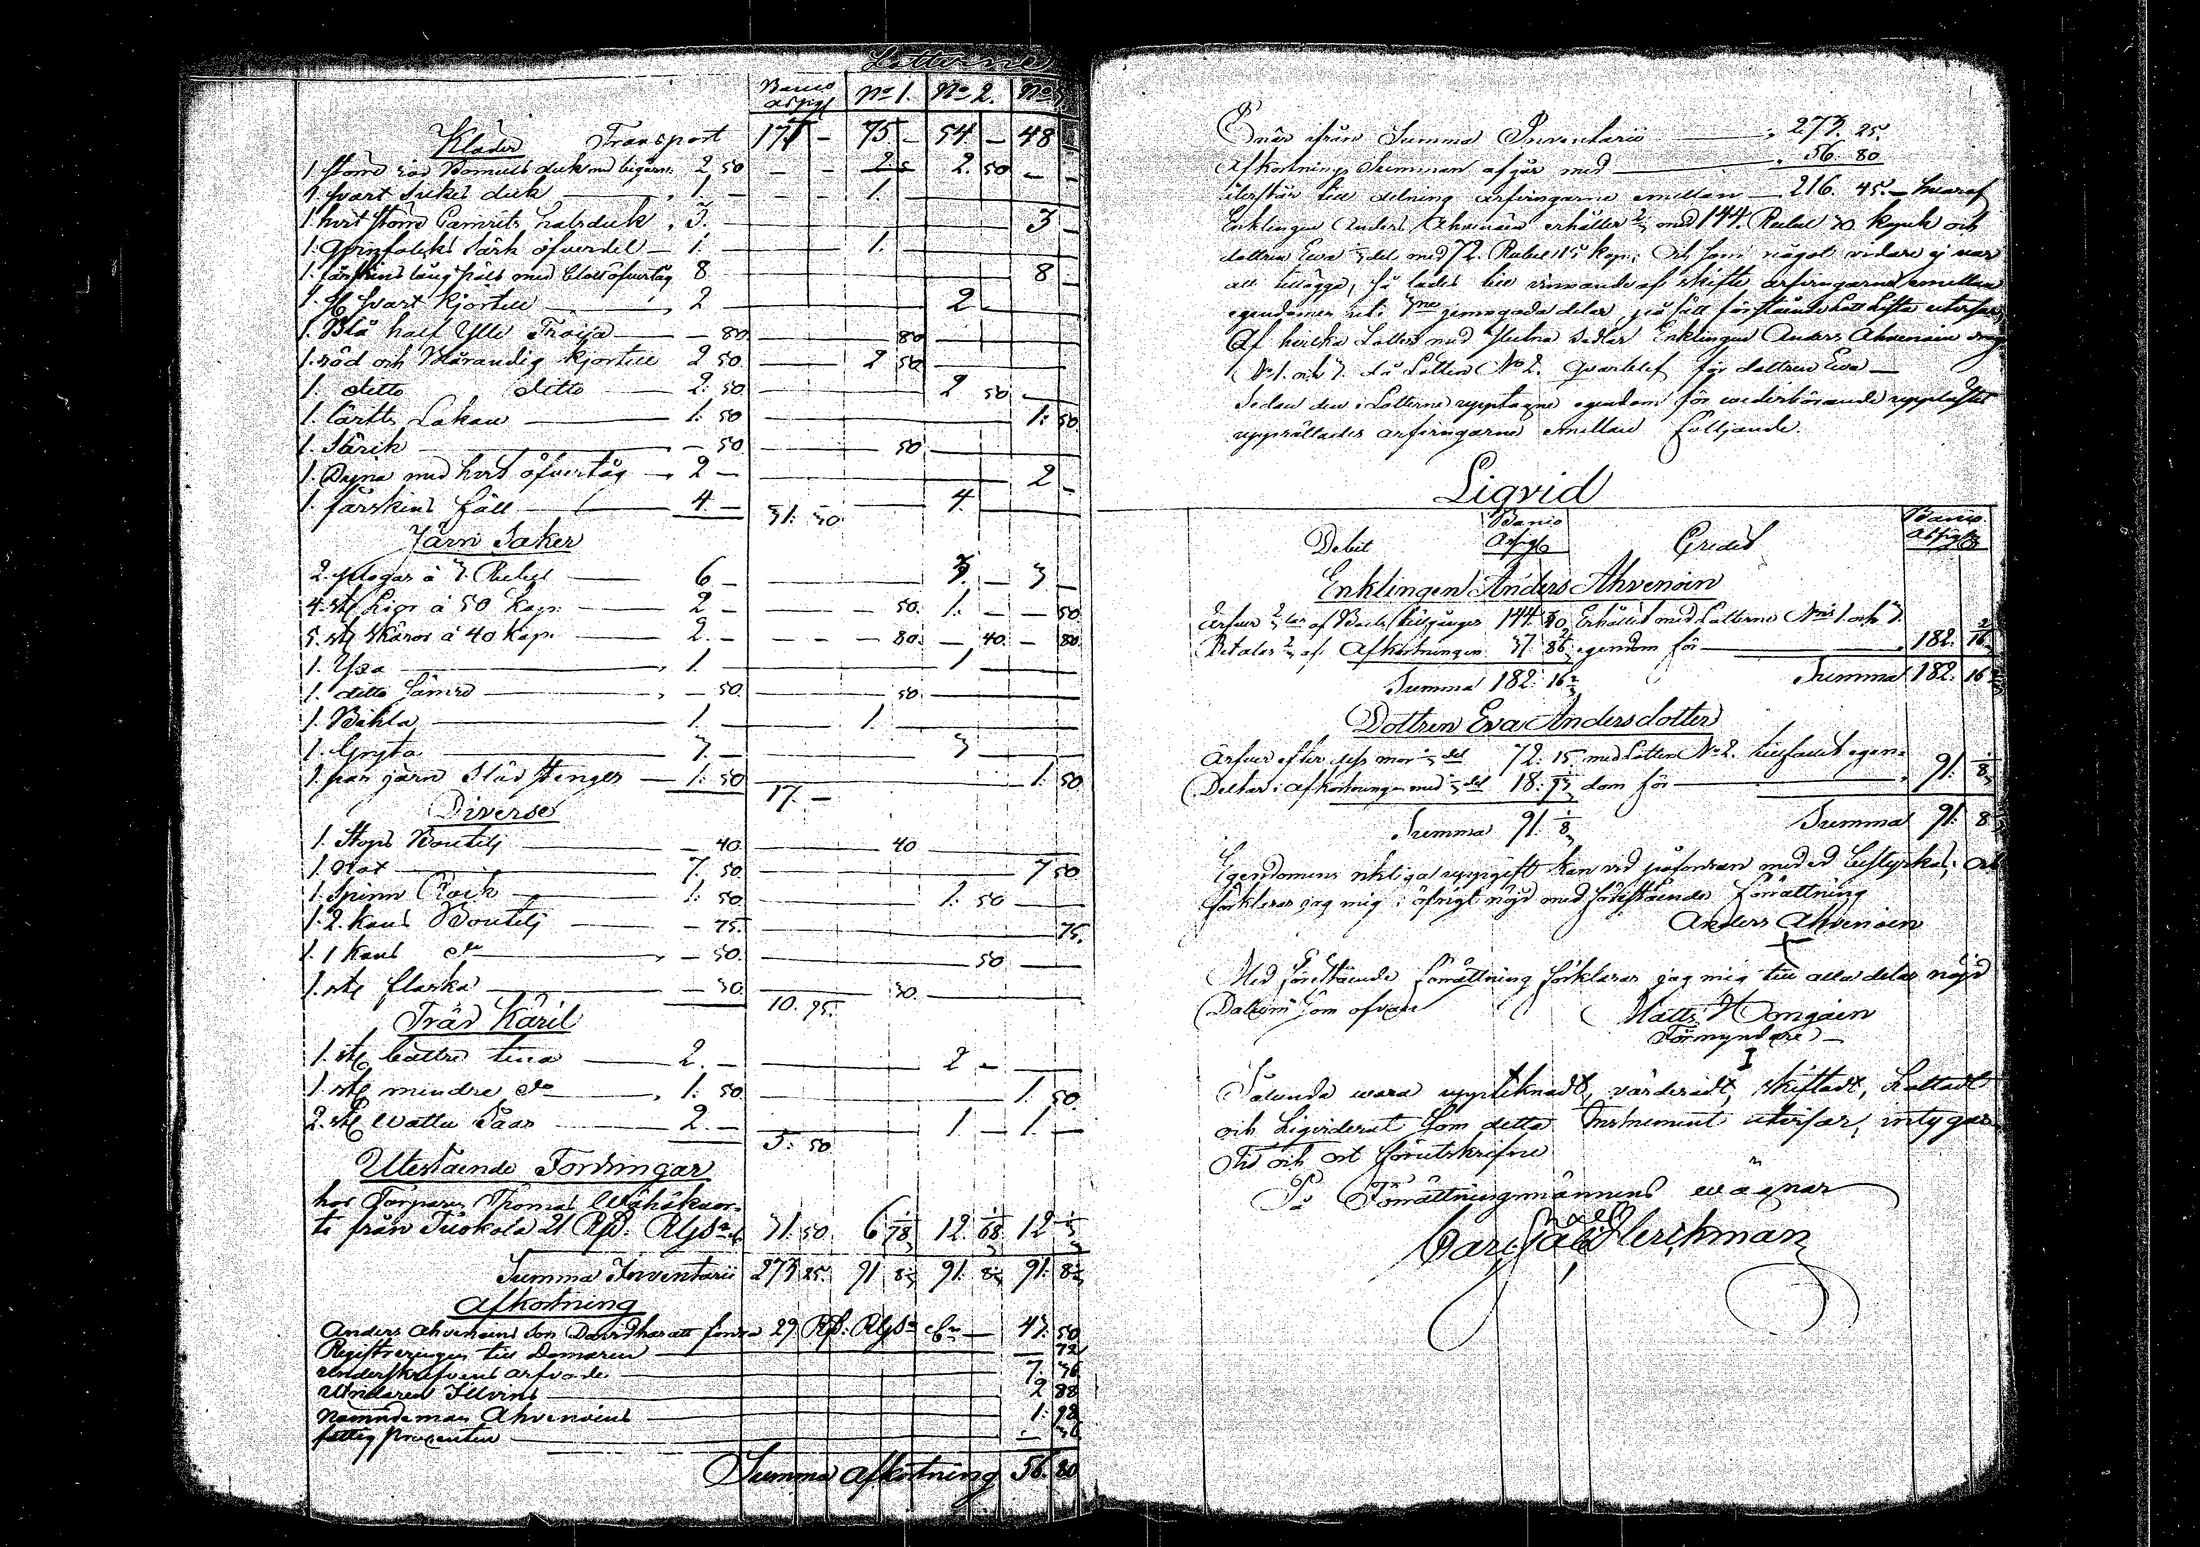 Lotterne
Banco
assig. No 1. No 2. No 3.
Kläder Transport 177 – 75 – 54 – 48 –
1. större röd Bomuls duk med 2. 50 – 2. 50
1. svart Silkes duk 1. – 1.
1. hvit större Camrits halsduk 3. 3 –
1. särk öfverdel 1. 1.
1. fårskins lång päls med blått öfvertåg 8 8 –
1. st svart Kjortell 2 2
1. Blå half Ylle Tröija – 80. 80
1. röd och blårandig Kjortell 2 50. 2 50
1. ditto ditto 2. 50. 2 50
1. lärfts Lakan 1. 50 1. 50
1. Särck – 50 50
1. Dyna med hvit öfvertåg 2 – 2 –
1. fårskins fäll 4 – 31. 30. 4.
Järn Saker
2. plogar à 3. Rubel 6 – 3. – 3 –
4. st Liar à 50 Kop. 2 – 50. 1. – 50.
5. st Skäror à 40 Kop. 2. – – 80. – 40. – 80.
1. Yxa 1. 1
1. ditto sämre – 50. 50.
1. Bihla 1. 1.
1. Gryta 3. – 3
1. par järn Stänger 1. 50 17. – 1. 50
Diverse
1. Stops Boutelj – 40 40
1. Not 7. 50. 7 50
1. Spinn Råck 1. 50 1. 50
1. 2. kans Boutelj – 75. 75.
1. 1 kans do – 50. 50
1. st flaska – 30 10. 95. 30.
Träd Käril
1. st bättre tina 2. – 2 –
1. st mindre do 1. 50. 1. 50.
2. st Wattu Såar 2. – 5. 50 1. – 1. –
Utestående Fordringar
hos Torparen Thomas
från Tuokola 21 Rb. 31. 50. 6 78 12. 68 12
Summa Inventarii 273 25. 91 8 91. 8 91. 8
Afkortning
Anders Ahvenains Son David har att fordra 29 Rb. 43. 50
Registreringen till Domaren – 72
Underskrefvens arfvode 7. 36
2 88
Nämndeman Ahvenains 1. 98
fattig Procenten – 36
Summa Afkortning 56. 80
När ifrån Summa Inventarii 273. 25.
Afkortnings Summan afgår med 56. 80
återstår till delning arfvingarne emellan 216. 45. – hvaraf
Enklingen Anders Ahvenain erhåller 2/3 med 144. Rubel 30 Kopek och
dottren Eva 1/3 del med 72. Rubel 15 kop. Och som något vidare ej var
att tillägga, så lades till skifte arfvingarne emellan
egendomen uti 3ne delar, på sätt förestående Lott Lista utvisar,
Af hvilka Lotter med Enklingen Anders Ahvenain
No 1. och 3. Då Lotten No 2. qvarblef för dottren Eva –
Sedan den i Lotterne upptagne egendom för vederbörande
upprättades arfvingarne emellan följande.
Liqvid
Debit Banco Assig. Credit Banco Assig.
Enklingen Anders Ahvenain
Ärfver 2/3 af Boets tillgångar 144. 30 Erhållit med Lotterne No 1. och 3.
Betalar 2/3 af Afkortningen 37. 86 2/3 egendom för 182. 16 2/3
Summa 182. 16 2/3 Summa 182. 16 2/3
Dottren Eva Andersdotter
Ärfver efter dess mor 1/3 del 72. 15. med Lotten No 2. tillfallit egen-
Deltar i afkortningen med 1/3 del 18. 93 1/3 dom för 91. 8 1/3
Summa 91. 8 1/3 Summa 91. 8 1/3
Egendomens riktiga uppgift kan vid påfordran med ed bestyrkas, och
förklarar jag mig i öfrigt nöjd med förestående förrättning
Anders Ahvenain
Med förestående förrättning förklarar jag mig till alla delar nöjd
Datum som ofvan
Matts
Förmyndare –
Sålunda vara uppteknadt, värderadt, skiftadt, Lottadt
och Liqviderat som detta Instrument utvisar, intygar
Tid och ort förutskrifne
På Förrättningsmännens wägnar
Carl